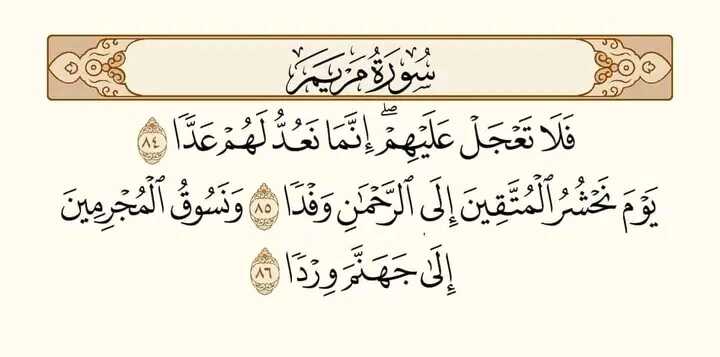 سُورَةُ مَرْيَمَ
فَلَا تَعْجَلْ عَلَيْهِمْ ۖ إِنَّمَا نَعُدُّ لَهُمْ عَدًّا ٨٤
يَوْمَ نَحْشُرُ ٱلْمُتَّقِينَ إِلَى ٱلرَّحْمَٰنِ وَفْدًا ٨٥ وَنَسُوقُ ٱلْمُجْرِمِينَ
إِلَىٰ جَهَنَّمَ وِرْدًا ٨٦